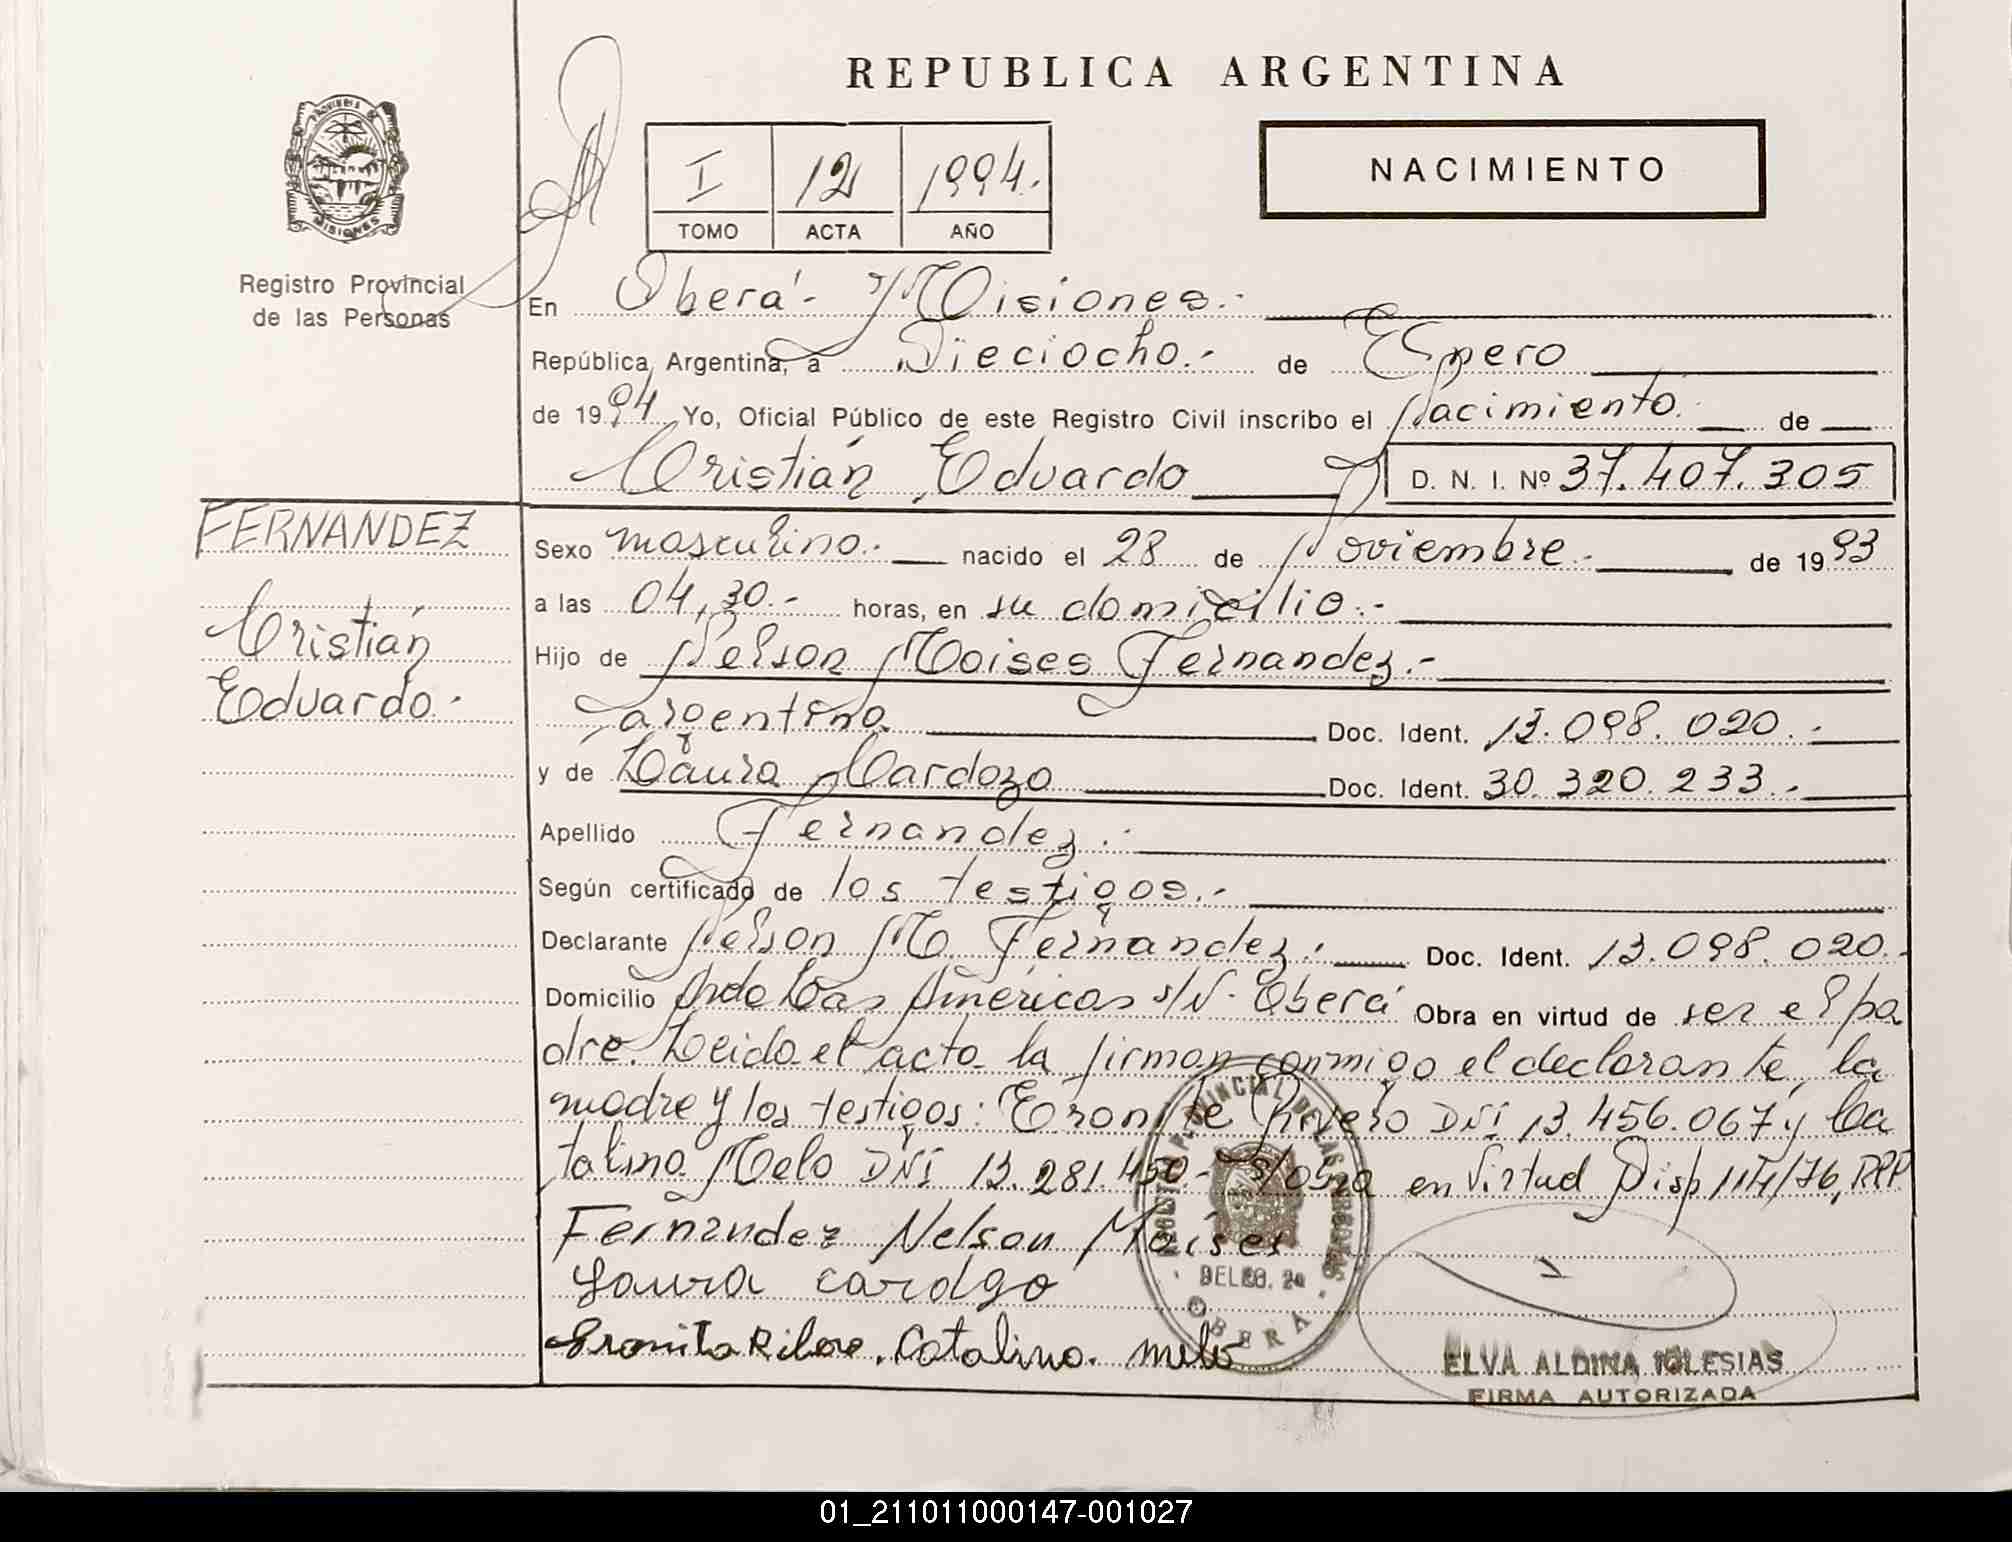 REPUBLICA ARGENTINA
PROVINCIA DE
MISIONES
Registro Provincial
de las Personas
I 12 1994.
TOMO ACTA AÑO
NACIMIENTO
En Oberá - Misiones.-
República Argentina, a Dieciocho.- de Enero
de 1994 Yo, Oficial Público de este Registro Civil inscribo el Nacimiento.- de
Cristián Eduardo D. N. I. Nº 37.407.305
FERNANDEZ
Cristián
Eduardo.-
Sexo masculino.- nacido el 28 de Noviembre.- de 1993
a las 04,30.- horas, en su domicilio.-
Hijo de Nelson Moises Fernandez.-
argentino Doc. Ident. 13.098.020.-
y de Laura Cardozo Doc. Ident. 30.320.233.-
Apellido Fernandez.-
Según certificado de los testigos.-
Declarante Nelson M. Fernandez.- Doc. Ident. 13.098.020.-
Domicilio Avda Las Américas s/N- Oberá Obra en virtud de ser el pa
dre. Leida el acta la firman conmigo el declarante, la
madre y los testigos: Eronita Rivero DNI 13.456.067 y Ca
talino Melo DNI 13.281.450- s/obra en virtud Disp 114/76, RPP
Fernandez Nelson Moises
Laura cardozo
Catalino. melo
REGISTRO PROVINCIAL DE LAS PERSONAS
OBERA
ELVA ALDINA IGLESIAS
FIRMA AUTORIZADA
01_211011000147-001027